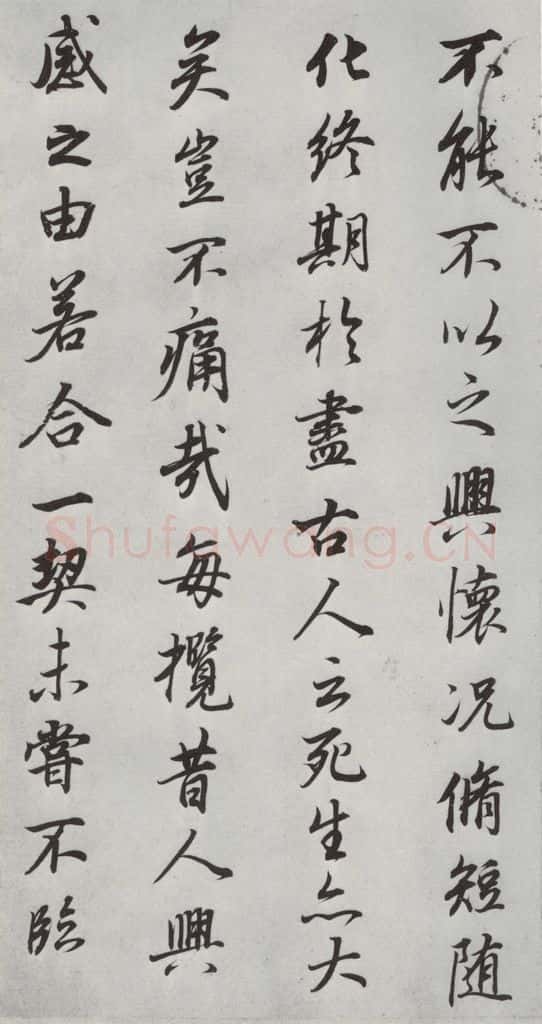 不能不以之興懷况脩短随
化終期於盡古人云死生亦大
矣豈不痛哉每攬昔人興
感之由若合一契未嘗不臨
Shufawang.CN